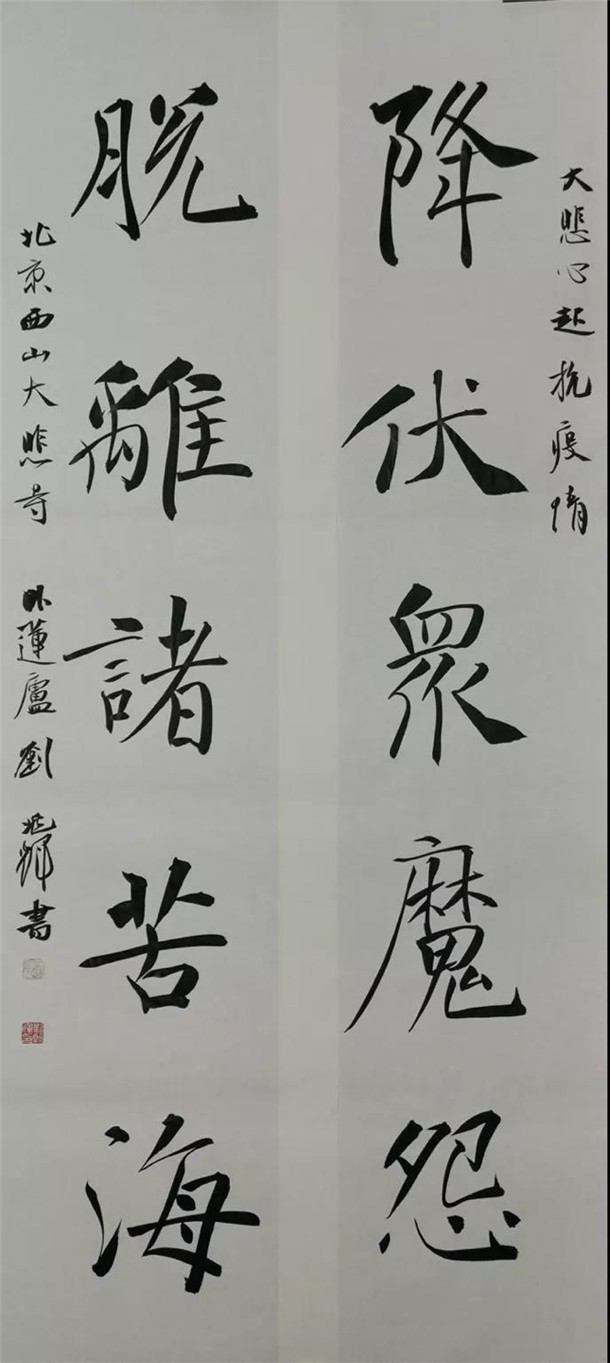 大悲心起抗疫情
降伏眾魔怨
脱離諸苦海
北京西山大悲寺 蓮廬劉書